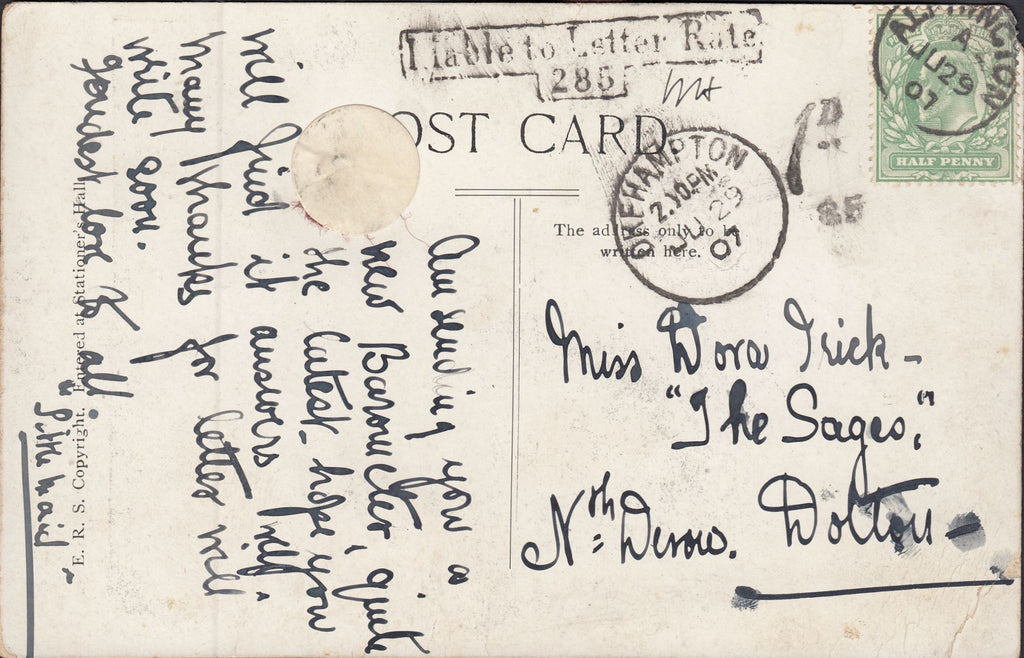 Liable to Letter Rate
285
POST CARD
ALPHINGTON
A
JU 29
07
HALF PENNY
OKEHAMPTON
2.10.PM
JU 29
07
1D
The address only to be
written here.
Miss Dora Trick -
"The Sages,"
Nth Devon. Dolton -
Am sending you a
new Barometer, quite
the latest. hope you
will find it answers well
many thanks for letter will
write soon.
Fondest love to all
"Little maid"
E. R. S. Copyright. Entered at Stationer's Hall.